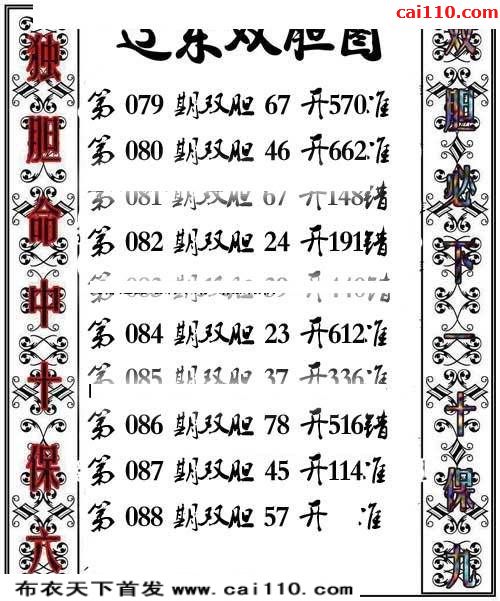 cai110.com
辽东双胆图
独胆命中十保六
双胆必下一十保九
第 079 期双胆 67 开570准
第 080 期双胆 46 开662准
第 081 期双胆 67 开148错
第 082 期双胆 24 开191错
第 084 期双胆 23 开612准
第 085 期双胆 37 开336准
第 086 期双胆 78 开516错
第 087 期双胆 45 开114准
第 088 期双胆 57 开 准
布衣天下首发 www.cai110.com